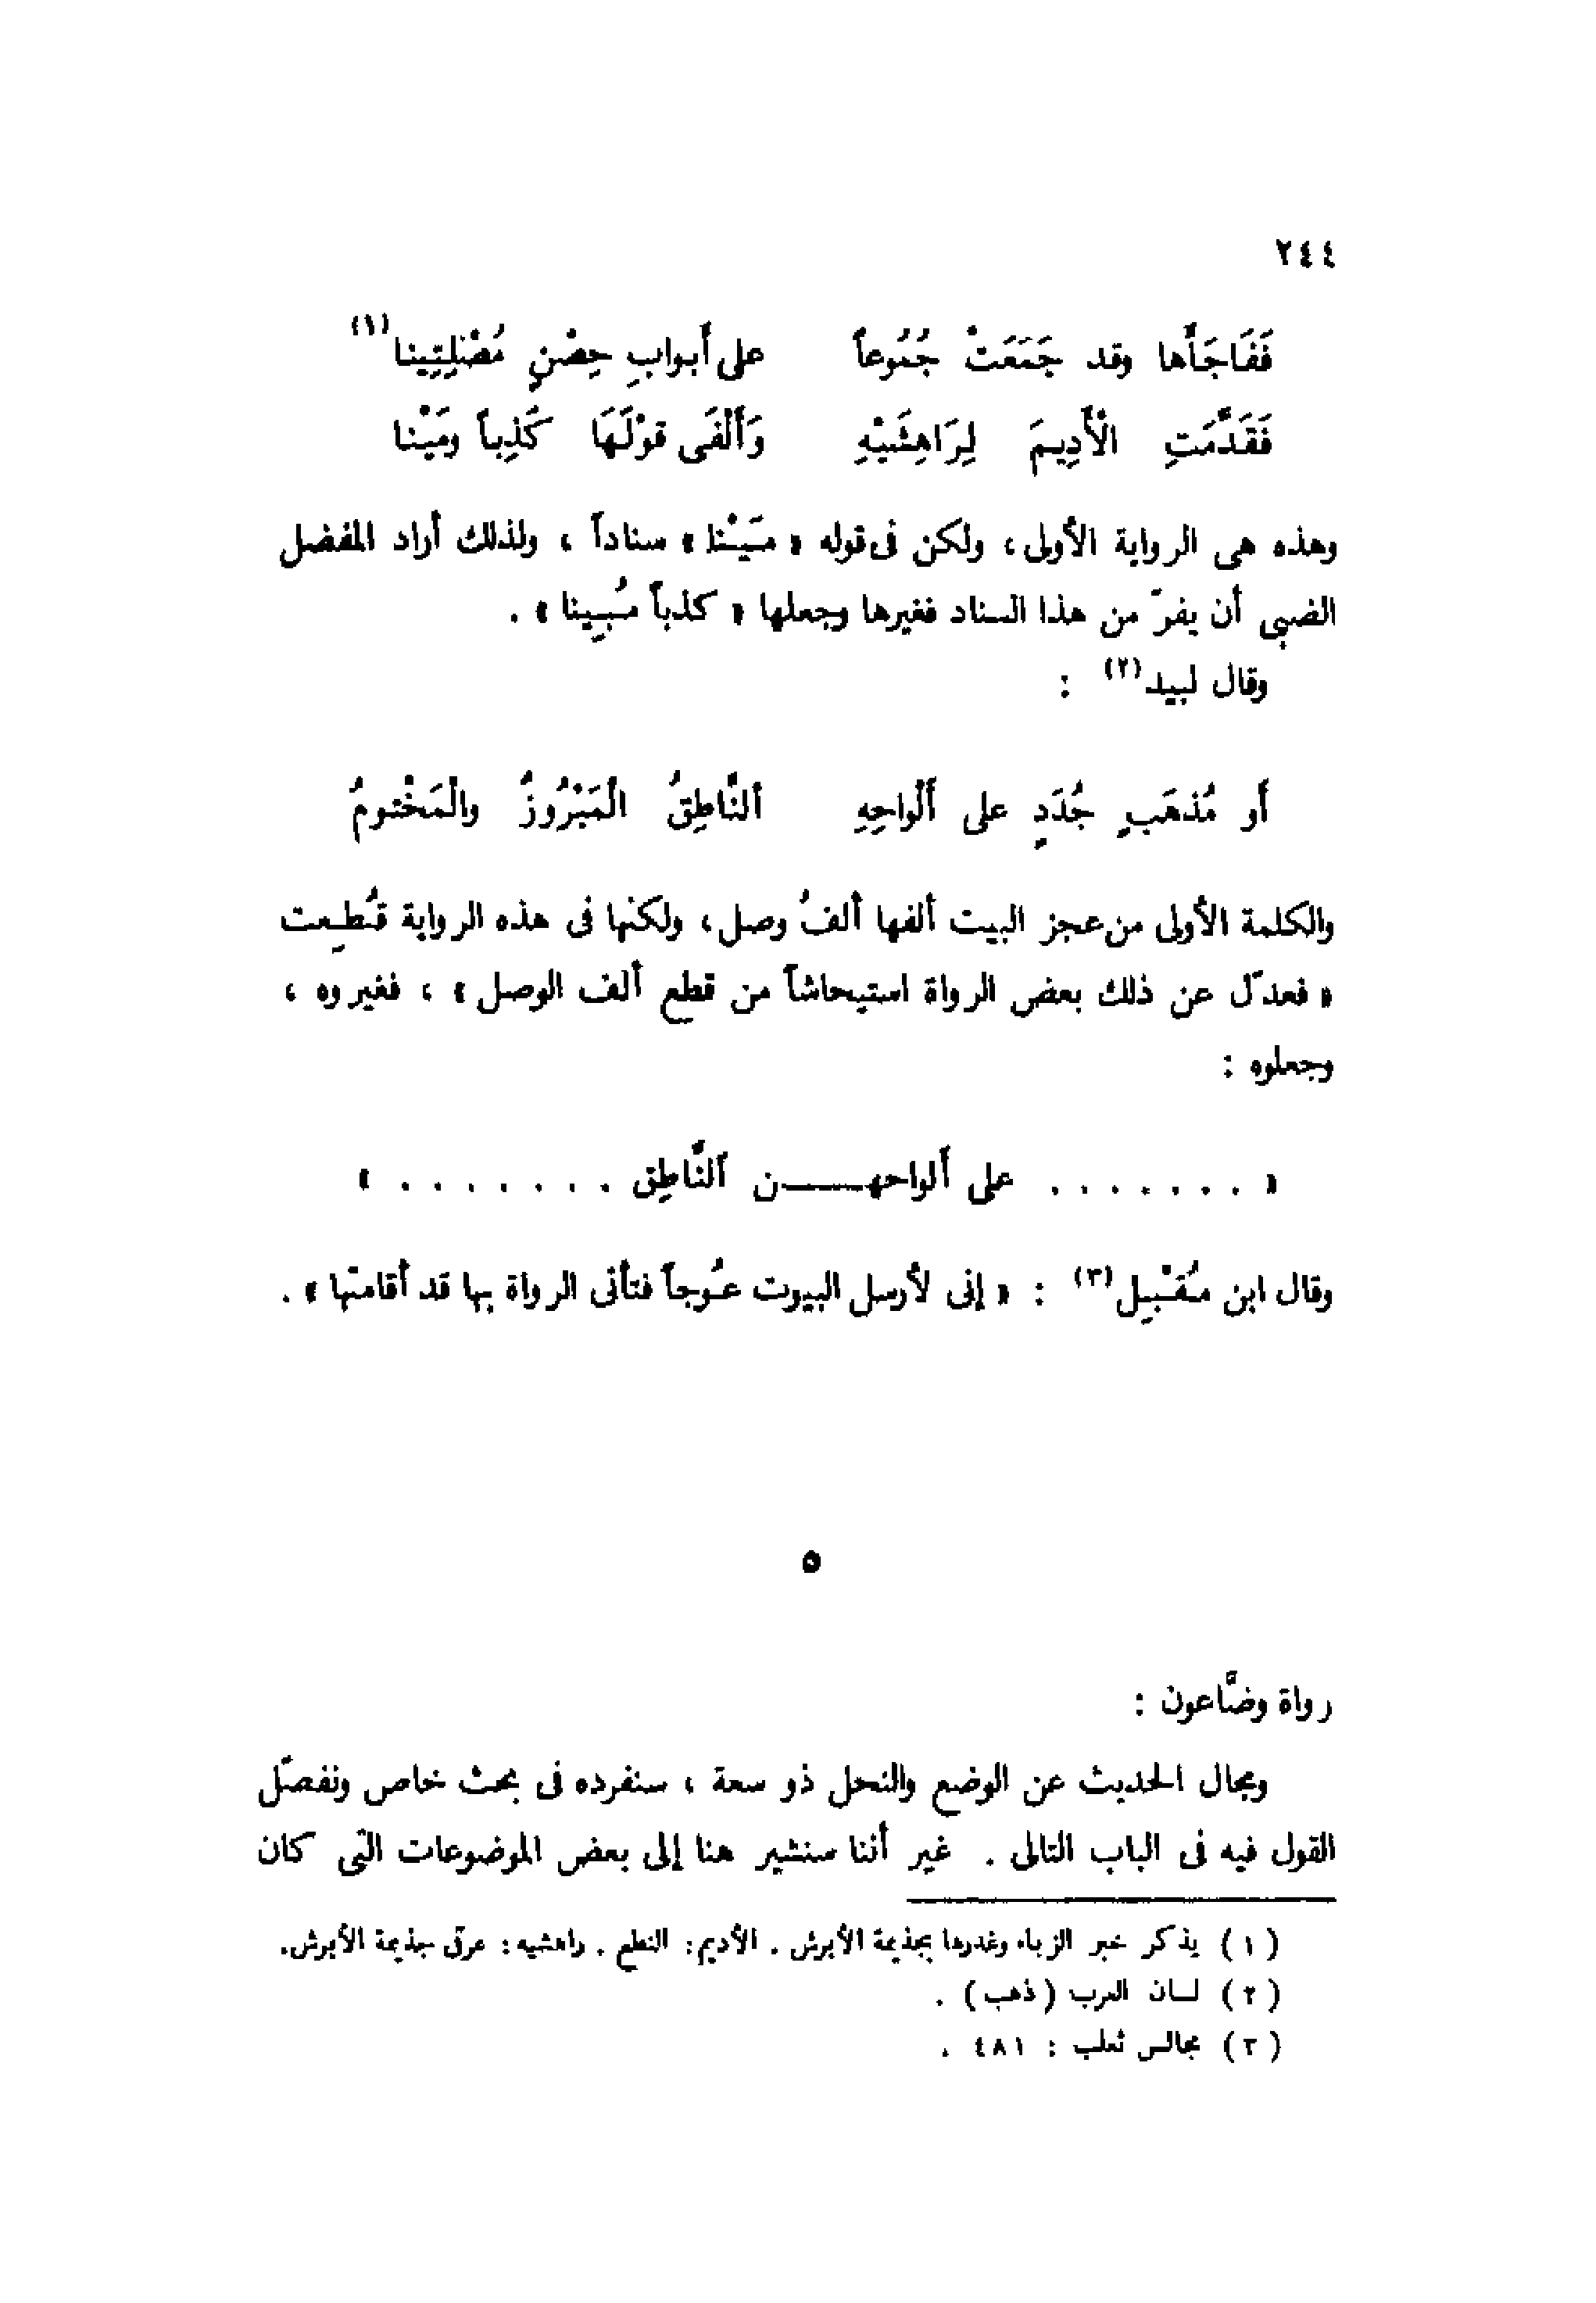 ٢٤٤
فَفَاجَأَها وقد جَمَعَتْ جُمُوعاً على أَبوابِ حِصْنٍ مُصْلِتِينا (١)
فَقَدَّمَتِ الْأَدِيمَ لِرَاهِشَيْهِ وَأَلْفَى قوْلَهَا كَذِباً ومَيْنا
وهذه هى الرواية الأولى، ولكن فى قوله « مَيْنا » سناداً ، ولذلك أراد المفضل
الضبى أن يفرّ من هذا السناد فغيرها وجعلها « كذباً مُبِينا » .
وقال لبيد (٢) :
أَو مُذهَبٍ جُدَدٍ على أَلْواحِهِ ألنَّاطِقُ الْمَبْرُوزُ والْمَخْتومُ
والكلمة الأولى من عجز البيت ألفها ألفُ وصل، ولكنها فى هذه الرواية قُطِعت
« فعدَل عن ذلك بعض الرواة استيحاشاً من قطع ألف الوصل » ، فغيروه ،
وجعلوه :
« . . . . . . . على ألواحهـــن ألنَّاطِق . . . . . . . »
وقال ابن مُقْبِل (٣) : « إنى لأرسل البيوت عُوجاً فتأتى الرواة بها قد أقامتْها » .
٥
رواة وضَّاعون :
ومجال الحديث عن الوضع والنحل ذو سعة ، سنفرده فى بحث خاص ونفصّل
القول فيه فى الباب التالى . غير أننا سنشير هنا إلى بعض الموضوعات التى كان
( ١ ) يذكر خبر الزباء وغدرها بجذيمة الأبرش . الأديم: النطع . راهشيه : عرقى جذيمة الأبرش.
( ٢ ) لسان العرب ( ذهب ) .
( ٣ ) مجالس ثعلب : ٤٨١ .